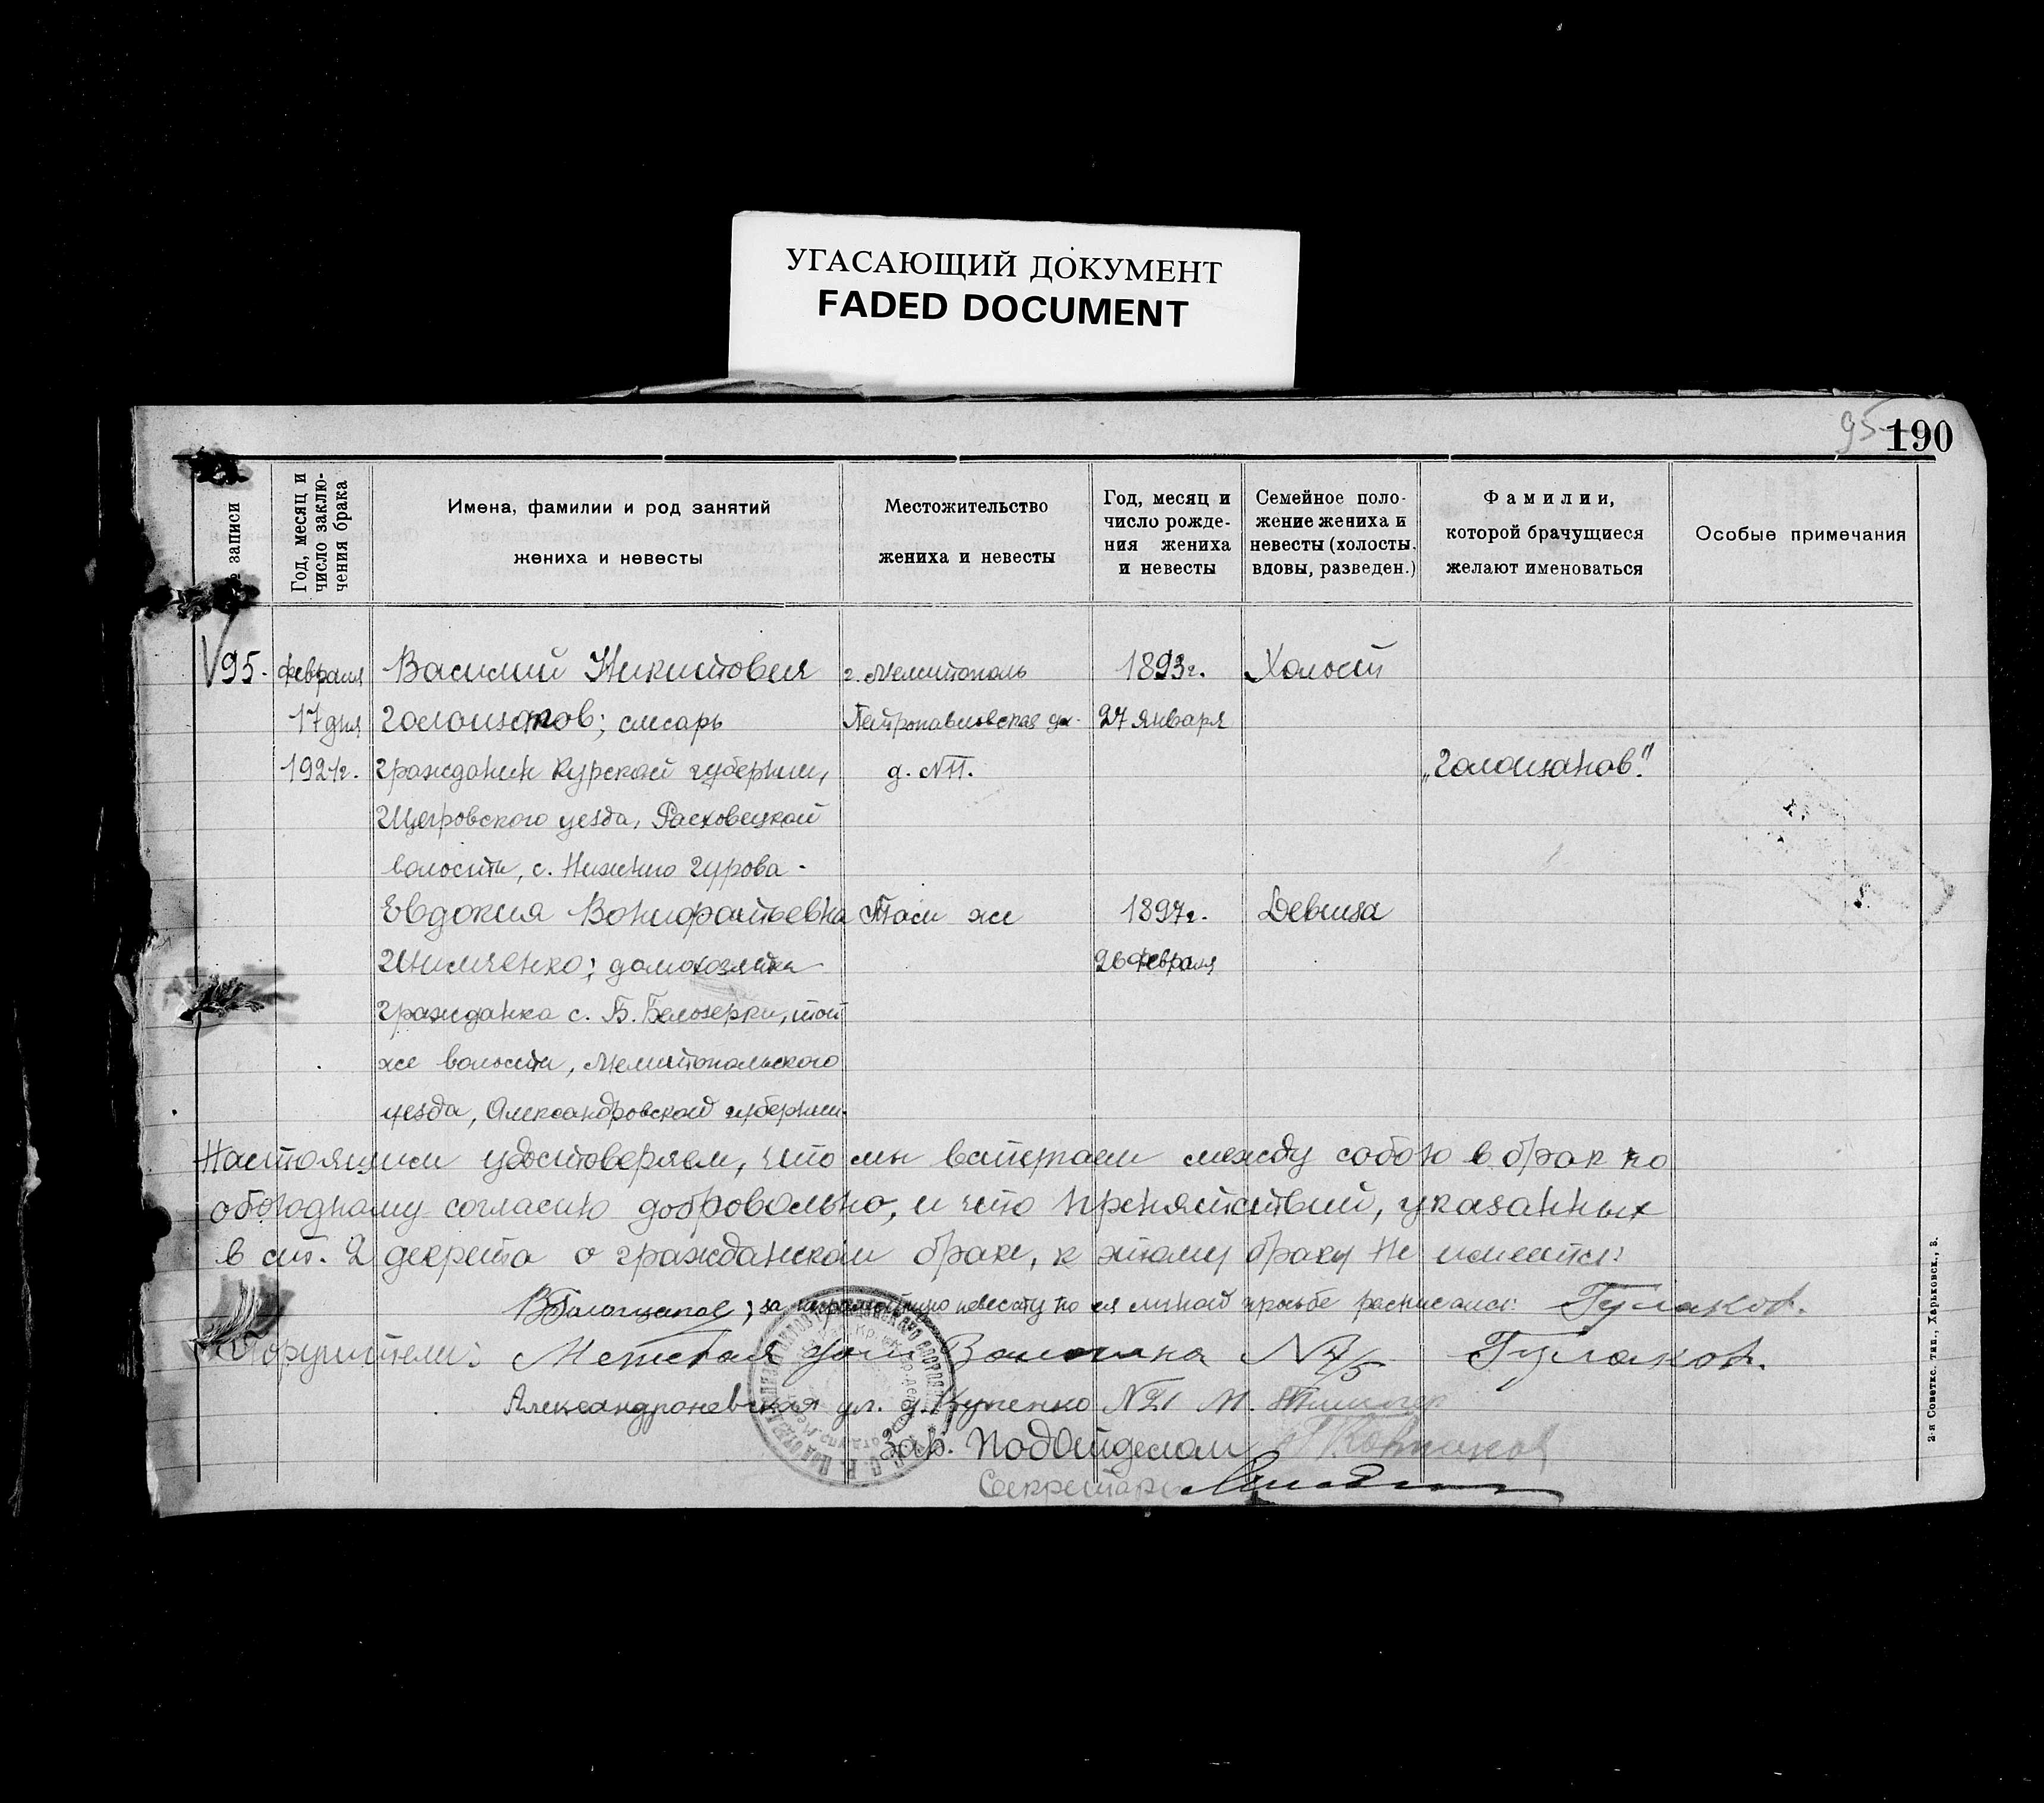 УГАСАЮЩИЙ ДОКУМЕНТ
FADED DOCUMENT
95
190
№ записи
Год, месяц и число заключения брака
Имена, фамилии и род занятий
жениха и невесты
Местожительство
жениха и невесты
Год, месяц и
число рожде-
ния жениха
и невесты
Семейное поло-
жение жениха и
невесты (холосты,
вдовы, разведен.)
Фамилии,
которой брачущиеся
желают именоваться
Особые примечания
95. февраля Василий Никитович г. Мелитополь 1893г. Холост
17 дня Голощапов; слесарь Петропавловская ул. 27 января
1921г. гражданин Курской губернии, д. №11. „Голощапов."
Щигровского уезда, Расховецкой
волости, с. Нижнио Гурова -
Евдокия Вонифатьевна Там же 1897г. Девица
домохозяйка 26 февраля
гражданка с. Б. Белозерки, той
же волости, Мелитопольского
уезда, Александровской губернии.
Настоящим удостоверяем, что мы вступаем между собою в брак по
обоюдному согласию добровольно, и что препятствий, указанных
в ст. 2 декрета о гражданском браке, к этому браку не имеется:
В Голощапов; за неграмотную невесту по ея личной просьбе расписался: Гулаков.
Поручители: дом №4/5 Гулаков.
ул. д. №21 М.
Зав. Подотделом
Секретарь
2-я Советск. тип., Харьковск., 3.